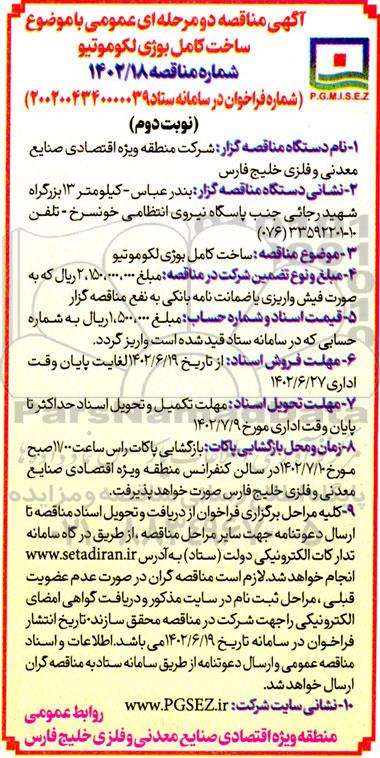 آگهی مناقصه دو مرحله ای عمومی با موضوع
ساخت کامل بوژی لکوموتیو
شماره مناقصه ۱۴۰۲/۱۸
P.G.M.I.S.E.Z
(شماره فراخوان در سامانه ستاد ۲۰۰۲۰۰۴۳۴۰۰۰۰۰۳۹)
(نوبت دوم)
۱-نام دستگاه مناقصه گزار: شرکت منطقه ویژه اقتصادی صنایع
معدنی و فلزی خلیج فارس
۲-نشانی دستگاه مناقصه گزار: بندر عباس - کیلومتر ۱۳ بزرگراه
شهید رجائی جنب پاسگاه نیروی انتظامی خونسرخ - تلفن
۱۰-۳۳۵۹۲۲۰۱ (۰۷۶)
۳-موضوع مناقصه: ساخت کامل بوژی لکوموتیو
۴-مبلغ و نوع تضمین شرکت در مناقصه: مبلغ ۲,۱۵۰,۰۰۰,۰۰۰ ریال که به
صورت فیش واریزی یا ضمانت نامه بانکی به نفع مناقصه گزار
۵-قیمت اسناد و شماره حساب: مبلغ ۱,۵۰۰,۰۰۰ ریال به شماره
حسابی که در سامانه ستاد قید شده است واریز گردد.
۶-مهلت فروش اسناد: از تاریخ ۱۴۰۲/۶/۱۹ لغایت پایان وقت
اداری ۱۴۰۲/۶/۲۷
۷-مهلت تحویل اسناد: مهلت تکمیل و تحویل اسناد حداکثر تا
پایان وقت اداری مورخ ۱۴۰۲/۷/۹
۸-زمان و محل بازگشایی پاکات: بازگشایی پاکات راس ساعت ۱۱:۰۰ صبح
مورخ ۱۴۰۲/۷/۱۰ در سالن کنفرانس منطقه ویژه اقتصادی صنایع
معدنی و فلزی خلیج فارس صورت خواهد پذیرفت.
۹-کلیه مراحل برگزاری فراخوان از دریافت و تحویل اسناد مناقصه تا
ارسال دعوتنامه جهت سایر مراحل مناقصه، از طریق درگاه سامانه
تدارکات الکترونیکی دولت (ستاد) به آدرس www.setadiran.ir
انجام خواهد شد. لازم است مناقصه گران در صورت عدم عضویت
قبلی، مراحل ثبت نام در سایت مذکور و دریافت گواهی امضای
الکترونیکی را جهت شرکت در مناقصه محقق سازند. تاریخ انتشار
فراخوان در سامانه تاریخ ۱۴۰۲/۶/۱۹ می باشد. اطلاعات و اسناد
مناقصه عمومی و ارسال دعوتنامه از طریق سامانه ستاد به مناقصه گران
ارسال خواهد شد.
۱۰-نشانی سایت شرکت: www.PGSEZ.ir
روابط عمومی
منطقه ویژه اقتصادی صنایع معدنی و فلزی خلیج فارس